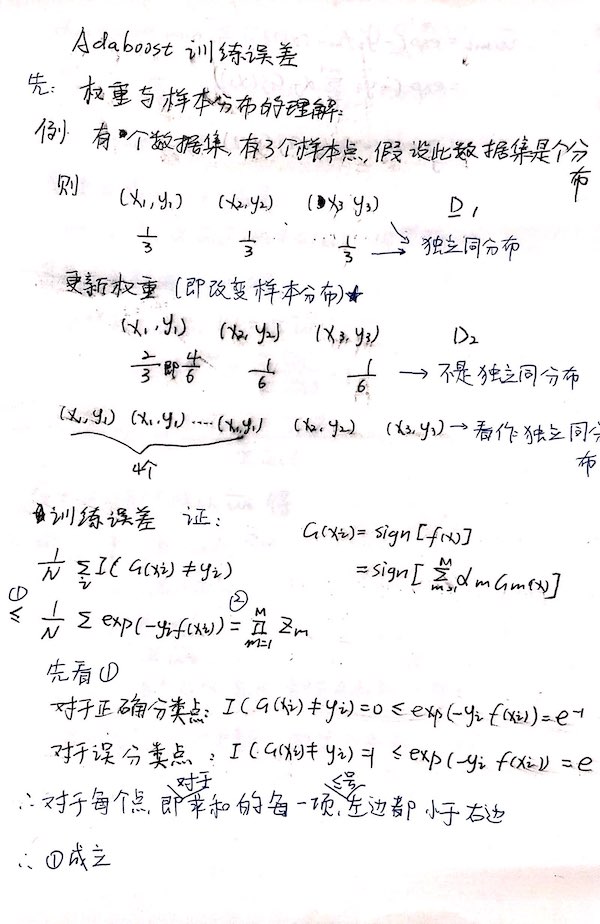 Adaboost 训练误差
先: 权重与样本分布的理解:
例 有个数据集,有3个样本点,假设此数据集是个分布
则 (x₁,y₁) (x₂,y₂) (x₃ y₃) D₁
1/3 1/3 ... 1/3 → 独立同分布
更新权重 (即改变样本分布)
(x₁,y₁) (x₂,y₂) (x₃,y₃) D₂
2/3 即 4/6 1/6 1/6 → 不是独立同分布
(x₁,y₁) (x₁,y₁) ···· (x₁,y₁) (x₂,y₂) (x₃,y₃) → 看作独立同分布
4个
训练误差 证: G(xi) = sign[f(x)]
1/N Σ_i I(G(xi) ≠ yi) = sign[Σ_{m=1}^{M} αm Gm(x)]
① ≤ 1/N Σ exp(-yi f(xi)) ② = Π_{m=1}^{M} Zm
先看①
对于正确分类点: I(G(xi) ≠ yi) = 0 ≤ exp(-yi f(xi)) = e⁻¹
对于误分类点: I(G(xi) ≠ yi) = 1 ≤ exp(-yi f(xi)) = e
∴ 对于每个点,即对于求和的每一项,≤号左边都小于右边
∴ ①成立